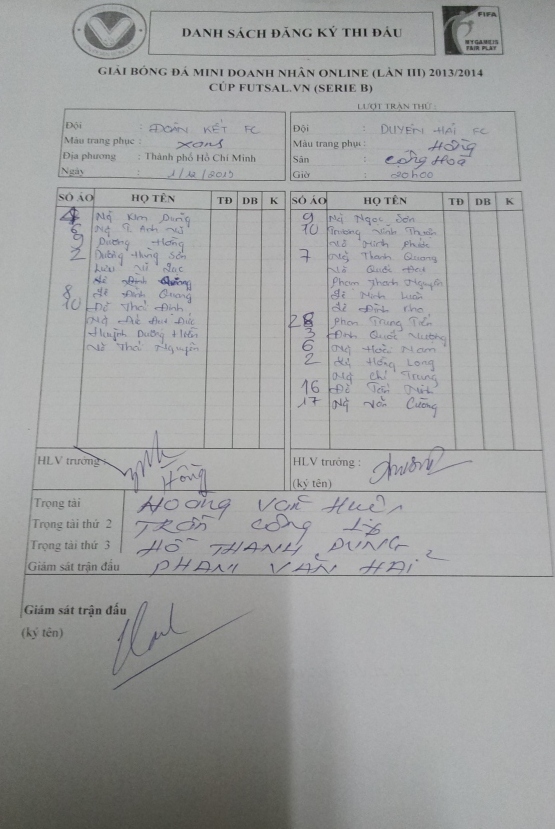 DANH SÁCH ĐĂNG KÝ THI ĐẤU
FIFA
MY GAME IS
FAIR PLAY
GIẢI BÓNG ĐÁ MINI DOANH NHÂN ONLINE (LẦN III) 2013/2014
CÚP FUTSAL.VN (SERIE B)
LƯỢT TRẬN THỨ :
Đội : ĐOÀN KẾT FC
Màu trang phục : xanh
Địa phương : Thành phố Hồ Chí Minh
Ngày : 1/12/2013
Đội : DUYÊN HẢI FC
Màu trang phục : Hồng
Sân : Cộng Hoà
Giờ : 20h00
SỐ ÁO HỌ TÊN TĐ DB K
Ng Kim Dũng
6
9 Dương Hồng
2 Dương Hùng Sơn
8 Lê Đình Quang
10 Đỗ Thái Định
Huỳnh Dương Hiền
Võ Thái Nguyên
SỐ ÁO HỌ TÊN TĐ DB K
9 Ng Ngọc Sơn
10 Trương Vĩnh
Võ Minh
7 Ng Thanh Quang
Võ Quốc Đạt
Phạm Thanh Nguyên
Lê Minh Luân
Lê Đình Kha
28 Phan Trung Tiến
3 Đinh Quốc Vương
6 Ng Hoài Nam
2 Hồng Long
Ng Chí Trung
16 Tấn
17 Ng Văn Cường
HLV trưởng :
Hồng
HLV trưởng :
(ký tên)
Trọng tài HOÀNG VĂN
Trọng tài thứ 2 TRẦN CÔNG
Trọng tài thứ 3 HỒ THANH DŨNG
Giám sát trận đấu PHẠM VĂN HẢI
Giám sát trận đấu
(ký tên)